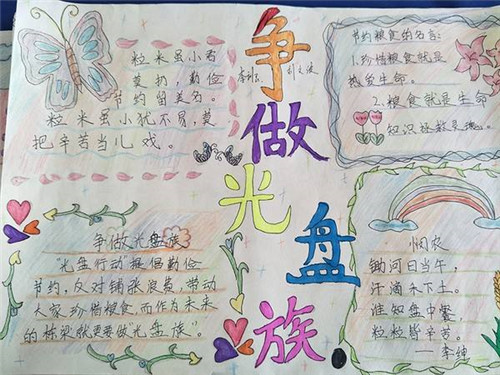 粒米虽小君
莫扔 勤俭
节约留美名。
粒米虽小犹不易,莫
把辛苦当儿戏。
争做光盘族
节约粮食的名言:
1.珍惜粮食就是
热爱生命。
2.粮食就是生命
知识拯救灵魂。
争做光盘族
"光盘行动"提倡勤俭
节约,反对铺张浪费,带动
大家珍惜粮食,而作为未来
的栋梁就更要做"光盘族"。
悯农
锄河日当午,
汗滴禾下土。
谁知盘中餐,
粒粒皆辛苦。
——李绅